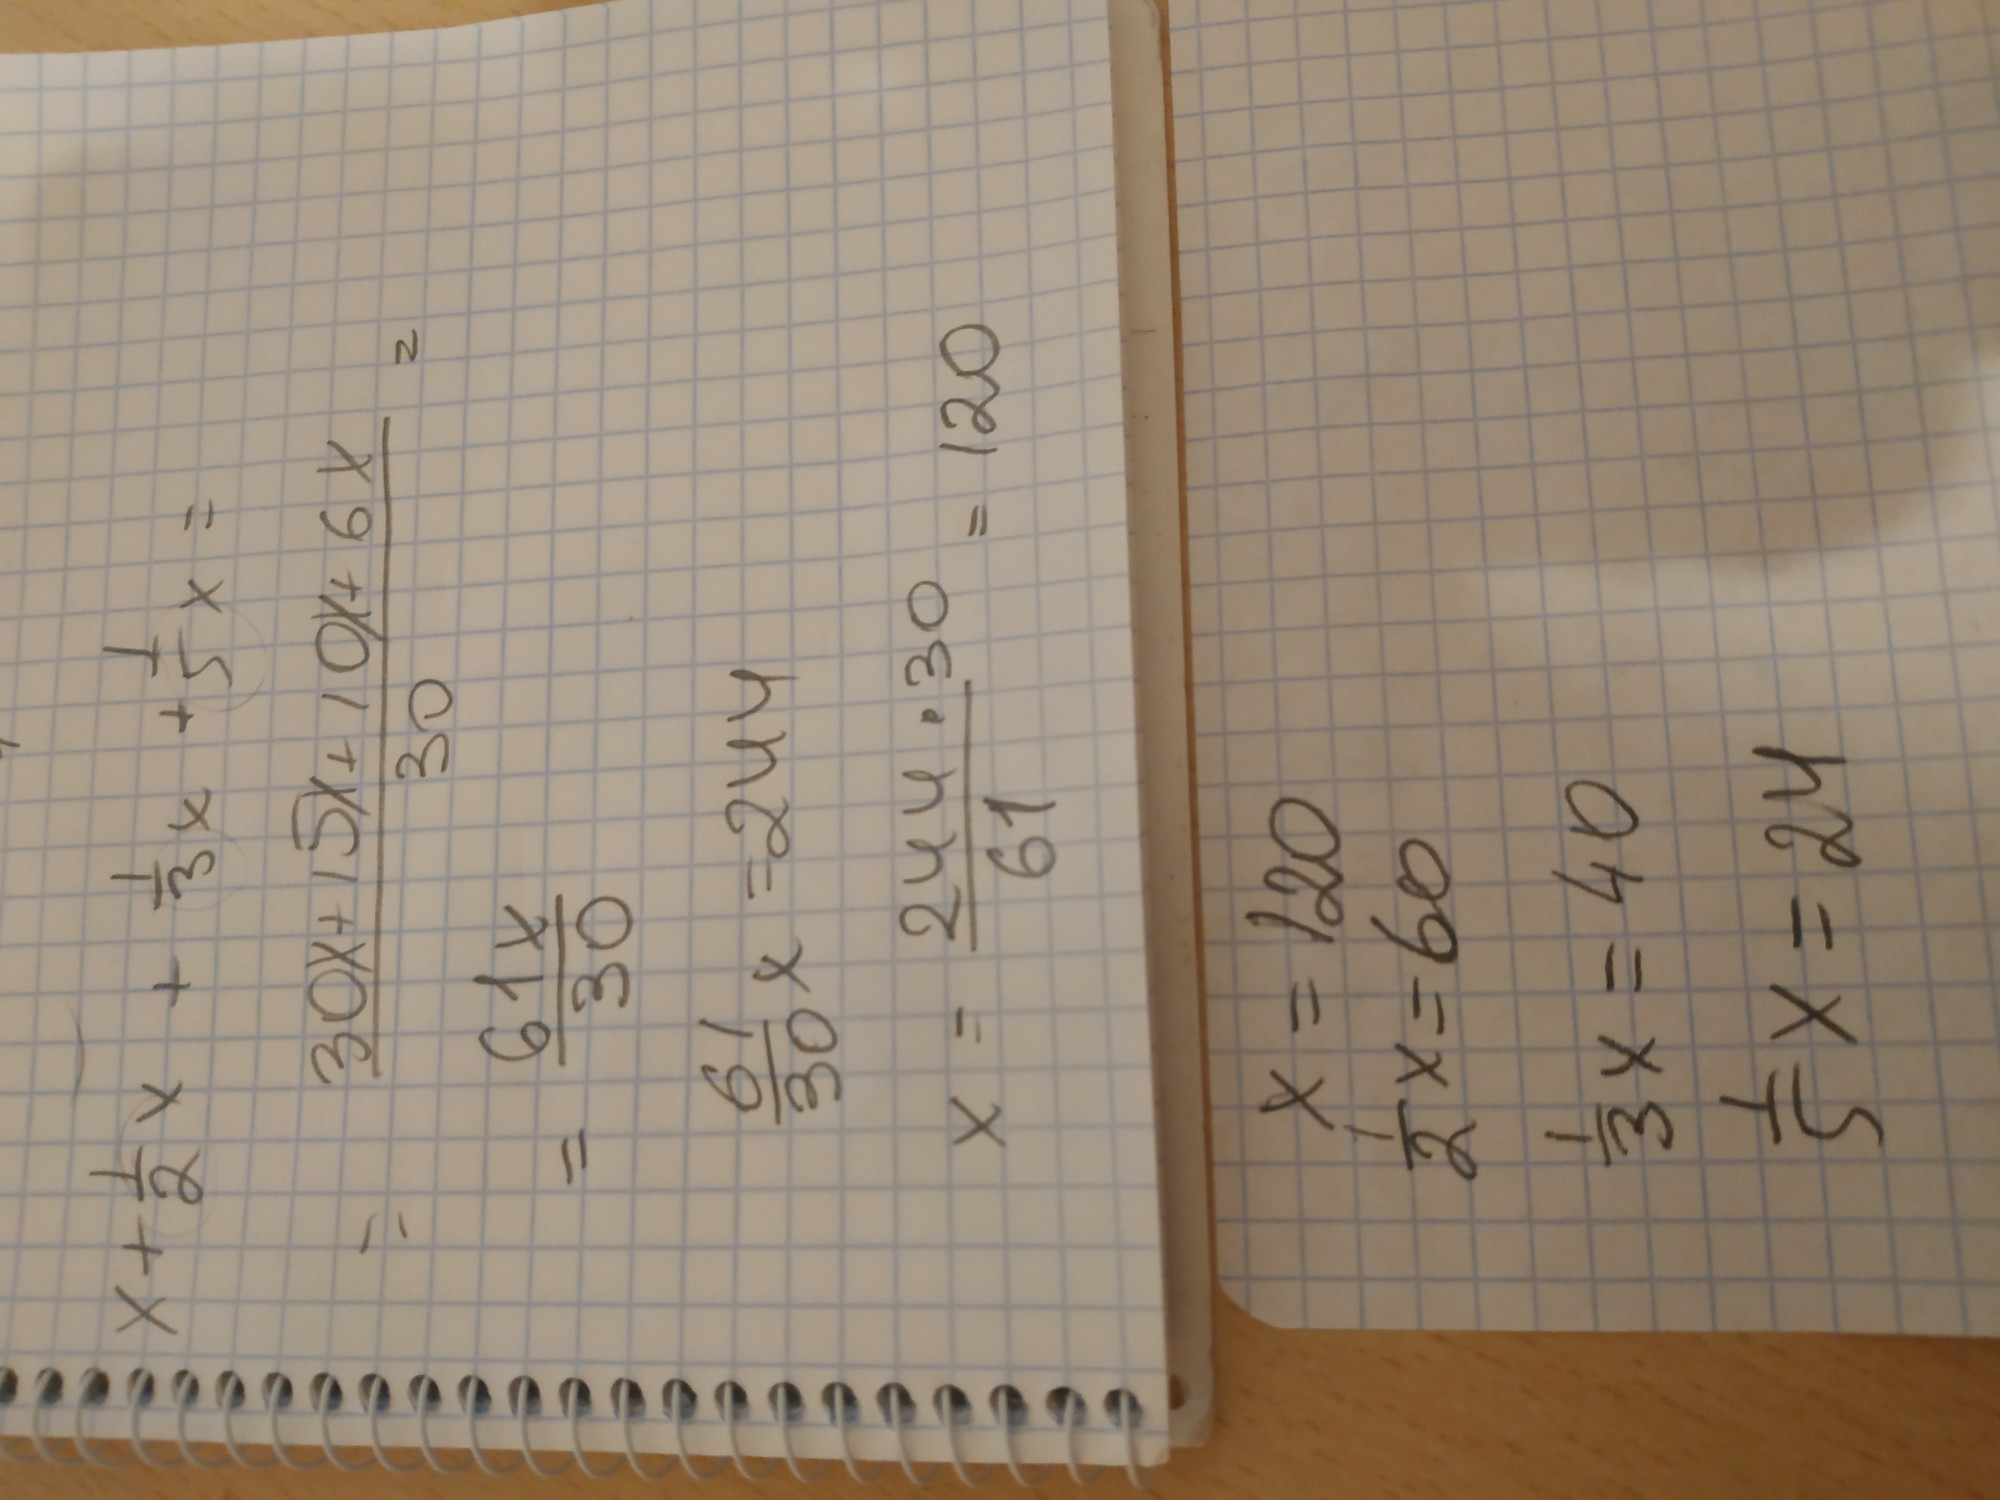 x + 1/2 x + 1/3 x + 1/5 x =
= (30x + 15x + 10x + 6x)/30 =
= 61x/30
61/30 x = 244
x = 244·30/61 = 120
x = 120
1/2 x = 60
1/3 x = 40
1/5 x = 24